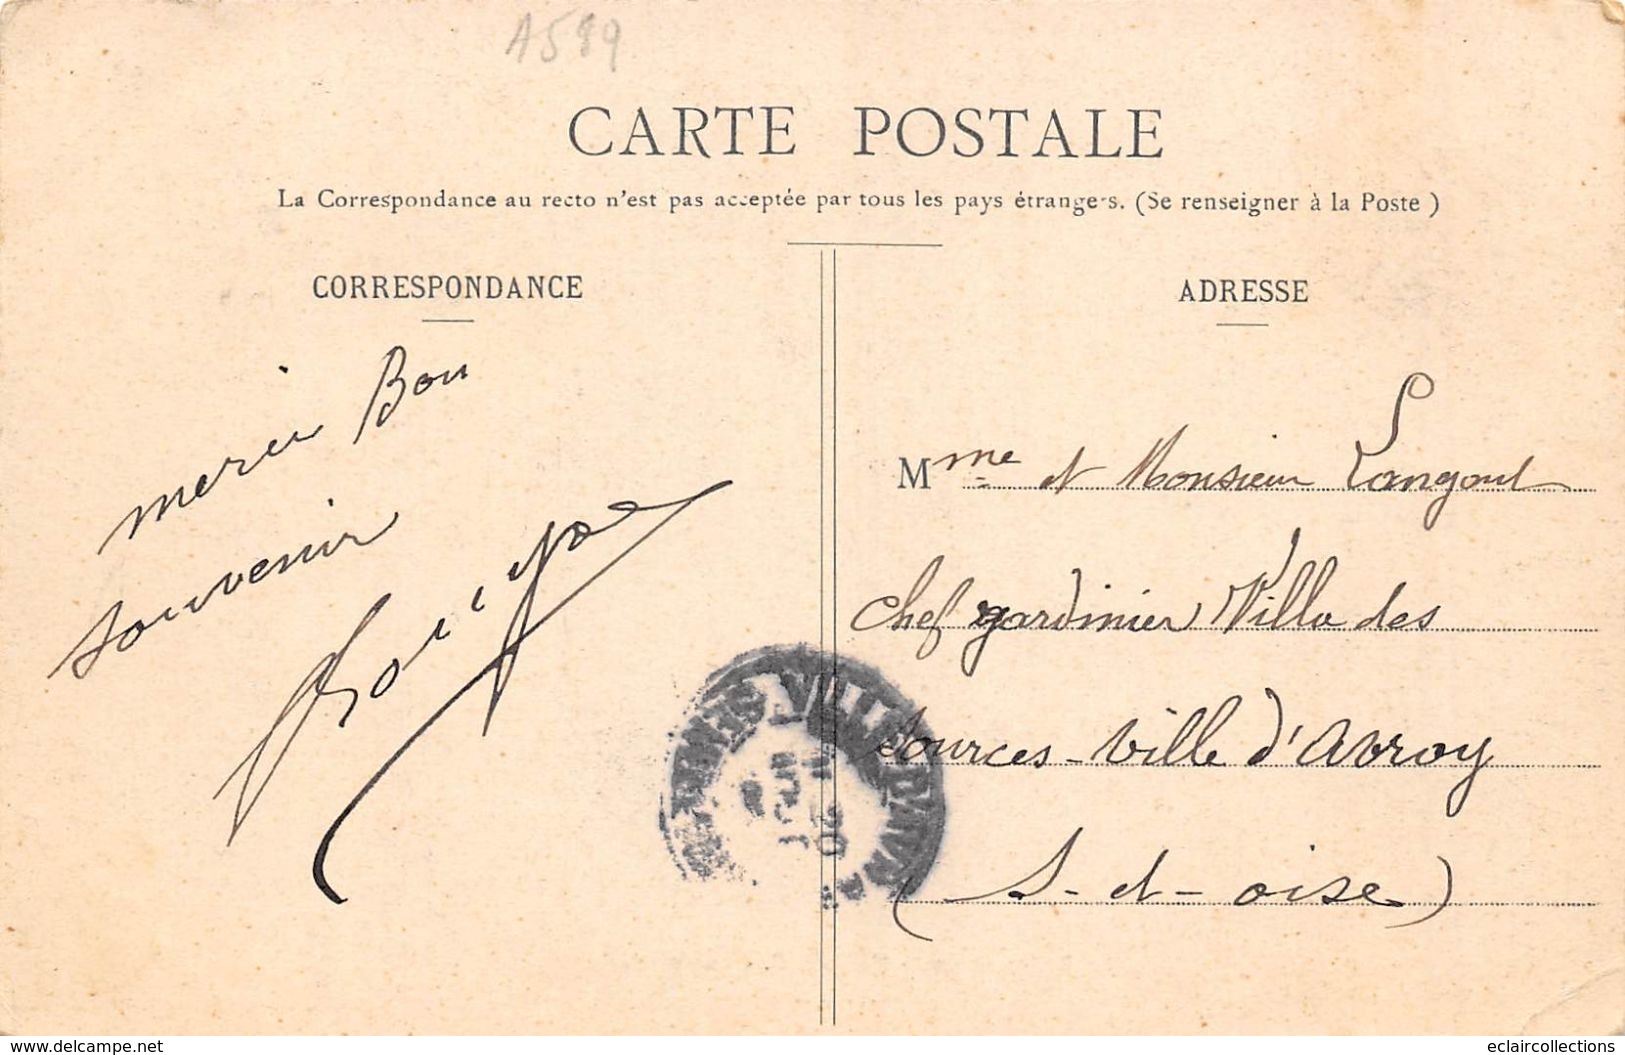 A589
CARTE POSTALE
La Correspondance au recto n'est pas acceptée par tous les pays étrangers. (Se renseigner à la Poste )
CORRESPONDANCE
merci Bon
souvenir
ADRESSE
Mme et Monsieur Langout
chef gardinier Villa des
sources - ville d'avroy
( S - et - oise )
VILLE D'AVRAY
www.delcampe.net
eclaircollections